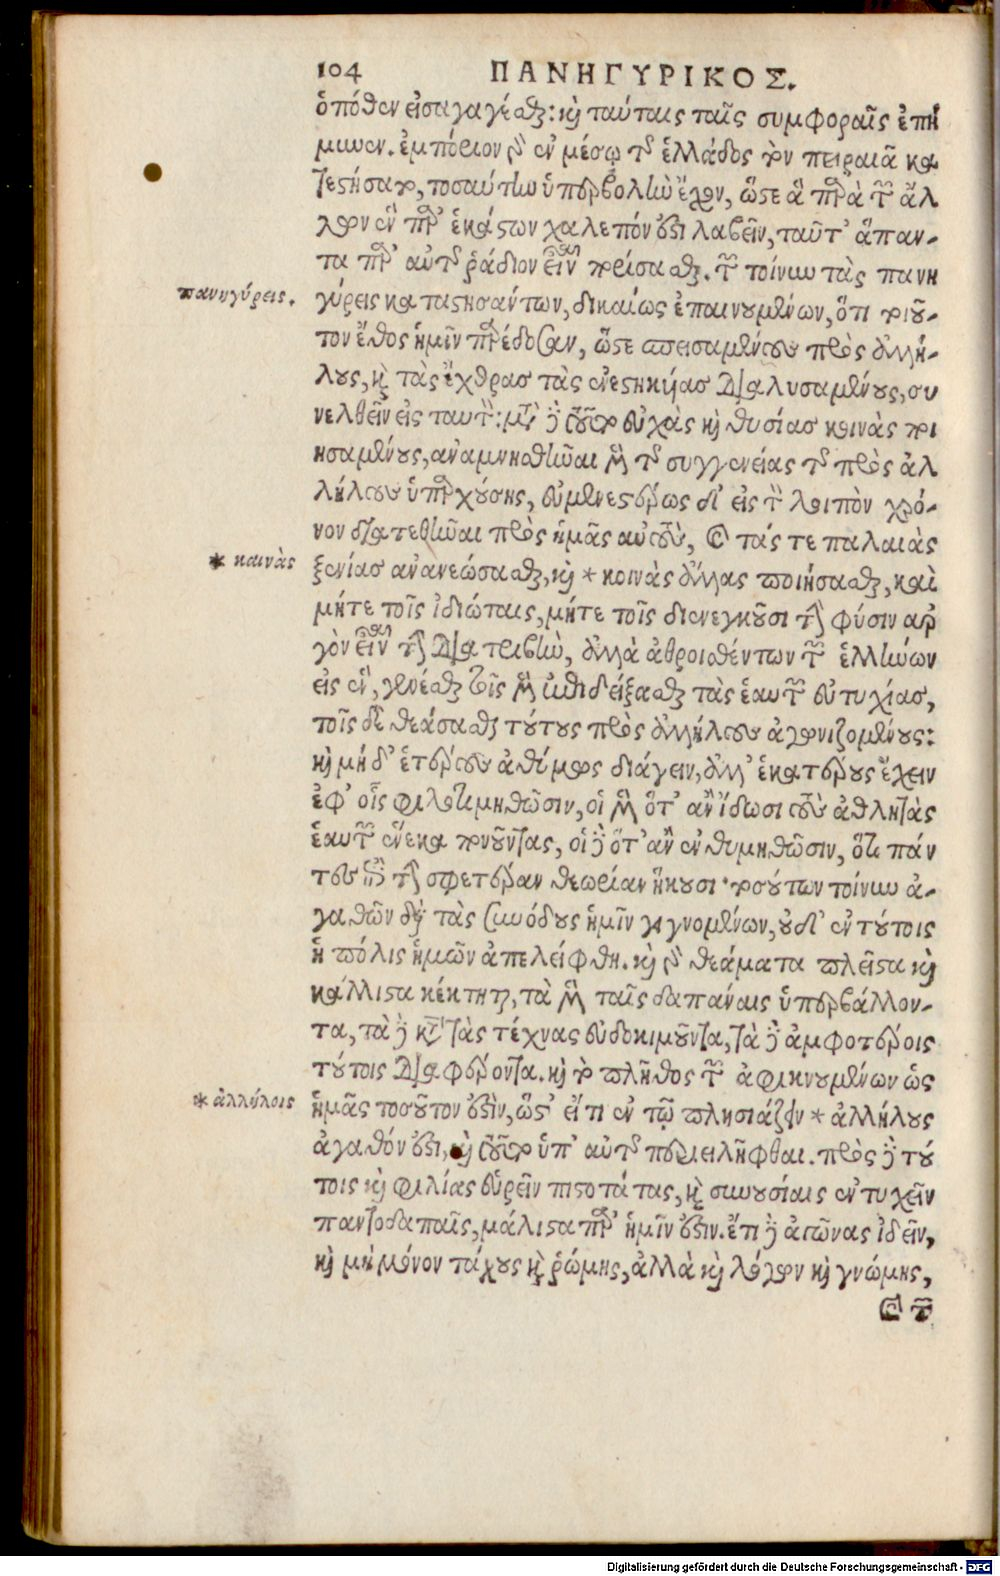 104 ΠΑΝΗΓΥΡΙΚΟΣ.
ὁπόθεν εἰσαγαγέσθαι: καὶ ταύταις ταῖς συμφοραῖς ἐπή
μυνεν. ἐμπόριον γὸ ἐν μέσῳ τῆς ἑλλάδος τὸν πειραιᾶ κα
τεστήσατο, τοσαύτην ὑπερβολὴν ἔχον, ὥστε ἃ παρὰ τῶν ἄλ
λων ἓν παρ' ἑκάστων χαλεπόν ἐστι λαβεῖν, ταῦτ' ἅπαν-
τα παρ' αὐτῆς ῥάδιον εἶναι πορίσασθαι. τῶν τοίνυν τὰς πανη
πανηγύρεις. γύρεις καταστησάντων, δικαίως ἐπαινουμένων, ὅτι τοιοῦ-
τον ἔθος ἡμῖν παρέδοσαν, ὥστε σπεισαμένους πρὸς ἀλλή-
λους, καὶ τὰς ἔχθρας τὰς ἐνεστηκυίας διαλυσαμένους, συ
νελθεῖν εἰς ταυτὸν: μετὰ δὲ ταῦτα εὐχὰς καὶ θυσίας κοινὰς ποι
ησαμένους, ἀναμνησθῆναι μὲν τῆς συγγενείας τῆς πρὸς ἀλ
λήλους ὑπαρχούσης, εὐμενεστέρως δ' εἰς τὸν λοιπὸν χρό-
νον διατεθῆναι πρὸς ἡμᾶς αὐτοὺς, καὶ τάς τε παλαιὰς
* καινὰς ξενίας ἀνανεώσασθαι, καὶ * κοινὰς ἄλλας ποιήσασθαι, καὶ
μήτε τοῖς ἰδιώταις, μήτε τοῖς διενεγκοῦσι τὴν φύσιν αρ
γὸν εἶναι τὴν διατριβὴν, ἀλλὰ ἀθροισθέντων τῶν ἑλλήνων
εἰς ἓν, γενέσθαι τοῖς μὲν ἐπιδείξασθαι τὰς ἑαυτῶν εὐτυχίας,
τοῖς δὲ θεάσασθαι τούτους πρὸς ἀλλήλους ἀγωνιζομένους:
καὶ μηδ' ἑτέρους ἀθύμως διάγειν, ἀλλ' ἑκατέρους ἔχειν
ἐφ' οἷς φιλοτιμηθῶσιν, οἱ μὲν ὅτ' ἂν ἴδωσι τοὺς ἀθλητὰς
ἑαυτῶν ἕνεκα πονοῦντας, οἱ δὲ ὅτ' ἂν ἐνθυμηθῶσιν, ὅτι πάν
τες ἐπὶ τὴν σφετέραν θεωρίαν ἥκουσι· τοσούτων τοίνυν ἀ-
γαθῶν διὰ τὰς συνόδους ἡμῖν γιγνομένων, οὐδ' ἐν τούτοις
ἡ πόλις ἡμῶν ἀπελείφθη. καὶ γὸ θεάματα πλεῖστα καὶ
κάλλιστα κέκτηται, τὰ μὲν ταῖς δαπάναις ὑπερβάλλον-
τα, τὰ δὲ κατὰ τὰς τέχνας εὐδοκιμοῦντα, τὰ δὲ ἀμφοτέροις
τούτοις διαφέροντα. καὶ τὸ πλῆθος τῶν ἀφικνουμένων ὡς
* ἀλλήλοις ἡμᾶς τοσοῦτον ἐστὶν, ὥστ' εἴ τι ἐν τῷ πλησιάζειν * ἀλλήλους
ἀγαθόν ἐστι, καὶ τοῦτο ὑπ' αὐτῆς περιειλῆφθαι. πρὸς δὲ τού
τοις καὶ φιλίας εὑρεῖν πιστοτάτας, καὶ συνουσίαις ἐντυχεῖν
παντοδαπαῖς, μάλιστα παρ' ἡμῖν ἐστιν. ἔτι δὲ ἀγῶνας ἰδεῖν,
καὶ μὴ μόνον τάχους καὶ ῥώμης, ἀλλὰ καὶ λόγων καὶ γνώμης,
καὶ τῶν
Digitalisierung gefördert durch die Deutsche Forschungsgemeinschaft - DFG